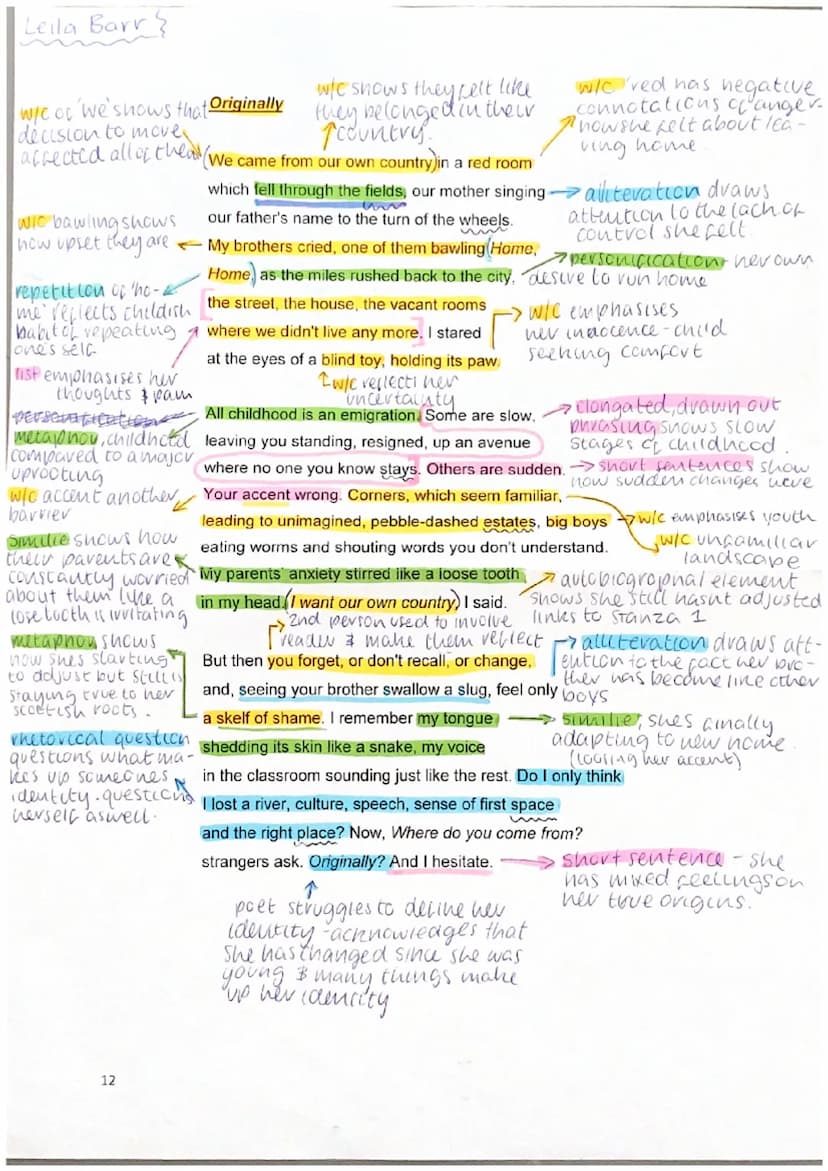 Leila Barr
Originally
w/c of 'we' shows that
decision to move
affected all of them
w/c shows they felt like
they belonged in their
country.
w/c 'red has negative
connotations of anger-
how she felt about lea-
ving home
We came from our own country in a red room
which fell through the fields, our mother singing
our father's name to the turn of the wheels.
My brothers cried, one of them bawling Home,
Home, as the miles rushed back to the city,
the street, the house, the vacant rooms
where we didn't live any more. I stared
at the eyes of a blind toy, holding its paw.
alliteration draws
attention to the lack of
control she felt
w/c bawling shows
how upset they are
personification her own
desire to run home
repetition of 'ho-
me' reflects childish
habit of repeating
one's self.
list emphasises her
thoughts & pain
w/c emphasises
her innocence - child
seeking comfort
w/c reflects her
uncertainty
All childhood is an emigration. Some are slow,
leaving you standing, resigned, up an avenue
where no one you know stays. Others are sudden.
Your accent wrong. Corners, which seem familiar,
leading to unimagined, pebble-dashed estates, big boys
eating worms and shouting words you don't understand.
My parents' anxiety stirred like a loose tooth
in my head. I want our own country, I said.
personification
metaphor, childhood
compared to a major
uprooting
w/c accent another
barrier
similie shows how
their parents are
constantly worried
about them like a
lose tooth is irritating
elongated, drawn out
phrasing shows slow
stages of childhood.
short sentences show
how sudden changes were
w/c emphasises youth
w/c unfamiliar
landscape
shows she still hasnt adjusted
links to stanza 1
2nd person used to involve
reader & make them reflect
But then you forget, or don't recall, or change,
and, seeing your brother swallow a slug, feel only
a skelf of shame. I remember my tongue
shedding its skin like a snake, my voice
in the classroom sounding just like the rest. Do I only think
I lost a river, culture, speech, sense of first space
and the right place? Now, Where do you come from?
strangers ask. Originally? And I hesitate.
metaphor shows
how shes starting
to adjust but still is
staying true to her
scottish roots.
rhetorical question
questions what ma-
kes up someones
identity. questions
herself aswell.
alliteration draws att-
ention to the fact her bro-
ther has become like other
boys
similie, shes finally
adapting to new home
(losing her accent)
short sentence - she
has mixed feelings on
her true origins.
poet struggles to define her
identity - acknowledges that
she has changed since she was
young & many things make
up her identity
12